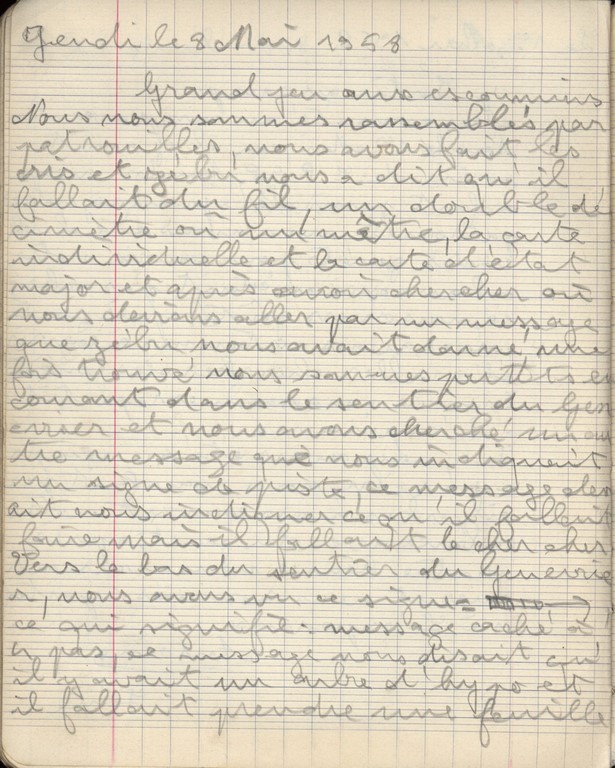 Jeudi le 8 Mai 1958
Grand jeu aux escoumins
Nous nous sommes rassemblés par
patrouilles, nous avons fait les
cris et zébu nous a dit qu'il
fallait du fil, un double dé
cimètre ou un mètre, la carte
individuelle et la carte d'état
major et après avoir chercher où
nous devions aller par un message
que zébu nous avait donné, une
fois trouvé nous sommes partits en
courant dans le sentier du Gen
evrier et nous avons cherché un au
tre message qui nous indiquait
un signe de piste, ce message dev
ait nous indiquer ce qu'il fallait
faire mais il fallait le chercher
Vers le bas du sentier du Genevrie
r, nous avons vu ce signe =
ce qui signifie : message caché à
4 pas ce message nous disait qu'
il y avait un arbre d'hypo et
il fallait prendre une feuille